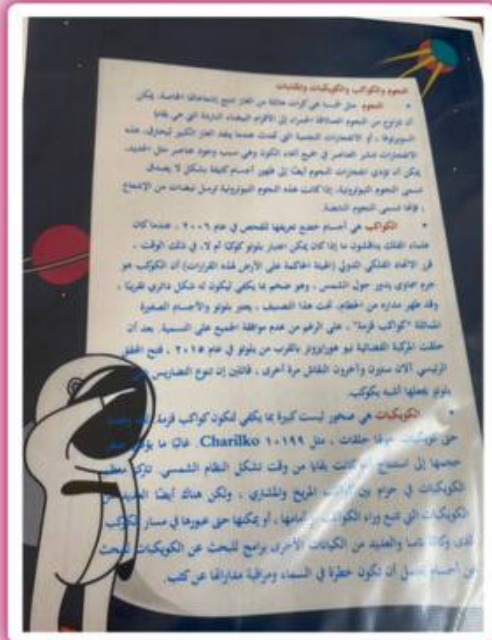 النجوم والكواكب والكويكبات والمذنبات
• النجوم مثل شمسنا هي كرات هائلة من الغاز تنتج إشعاعاتها الخاصة. يمكن
أن تتراوح من النجوم العملاقة الحمراء إلى الأقزام البيضاء الباردة التي هي بقايا
السوبرنوفا ، أو الانفجارات النجمية التي تحدث عندما ينفد الغاز الكبير ليحترق. هذه
الانفجارات تنشر العناصر في جميع أنحاء الكون وهي سبب وجود عناصر مثل الحديد.
يمكن أن تؤدي انفجارات النجوم أيضًا إلى ظهور أجسام كثيفة بشكل لا يصدق
تسمى النجوم النيوترونية. إذا كانت هذه النجوم النيوترونية ترسل نبضات من الإشعاع
، فإنها تسمى النجوم النابضة.
• الكواكب هي أجسام خضع تعريفها للفحص في عام ٢٠٠٦ ، عندما كان
علماء الفلك يناقشون ما إذا كان يمكن اعتبار بلوتو كوكبًا أم لا. في ذلك الوقت ،
قرر الاتحاد الفلكي الدولي (الهيئة الحاكمة على الأرض لهذه القرارات) أن الكوكب هو
جرم سماوي يدور حول الشمس ، وهو ضخم بما يكفي ليكون له شكل دائري تقريبًا ،
وقد طهر مداره من الحطام. تحت هذا التصنيف ، يعتبر بلوتو والأجسام الصغيرة
المماثلة "كواكب قزمة" ، على الرغم من عدم موافقة الجميع على التسمية. بعد أن
حلقت المركبة الفضائية نيو هورايزونز بالقرب من بلوتو في عام ٢٠١٥ ، فتح المحقق
الرئيسي آلان ستيرن وآخرون النقاش مرة أخرى ، قائلين إن تنوع التضاريس
بلوتو يجعلها أشبه بكوكب.
• الكويكبات هي صخور ليست كبيرة بما يكفي لتكون كواكب قزمة.
حتى كويكبات حولها حلقات ، مثل ١٠١٩٩ Charilko. غالبًا ما يؤدي صغر
حجمها إلى استنتاج أنها كانت بقايا من وقت تشكل النظام الشمسي. تتركز معظم
الكويكبات في حزام بين كواكب المريخ والمشتري ، ولكن هناك أيضًا العديد من
الكويكبات التي تتبع وراء الكواكب أو أمامها ، أو يمكنها حتى عبورها في مسار الكوكب.
لدى وكالة ناسا والعديد من الكيانات الأخرى برامج للبحث عن الكويكبات للبحث
عن أجسام يحتمل أن تكون خطرة في السماء ومراقبة مداراتها عن كثب.